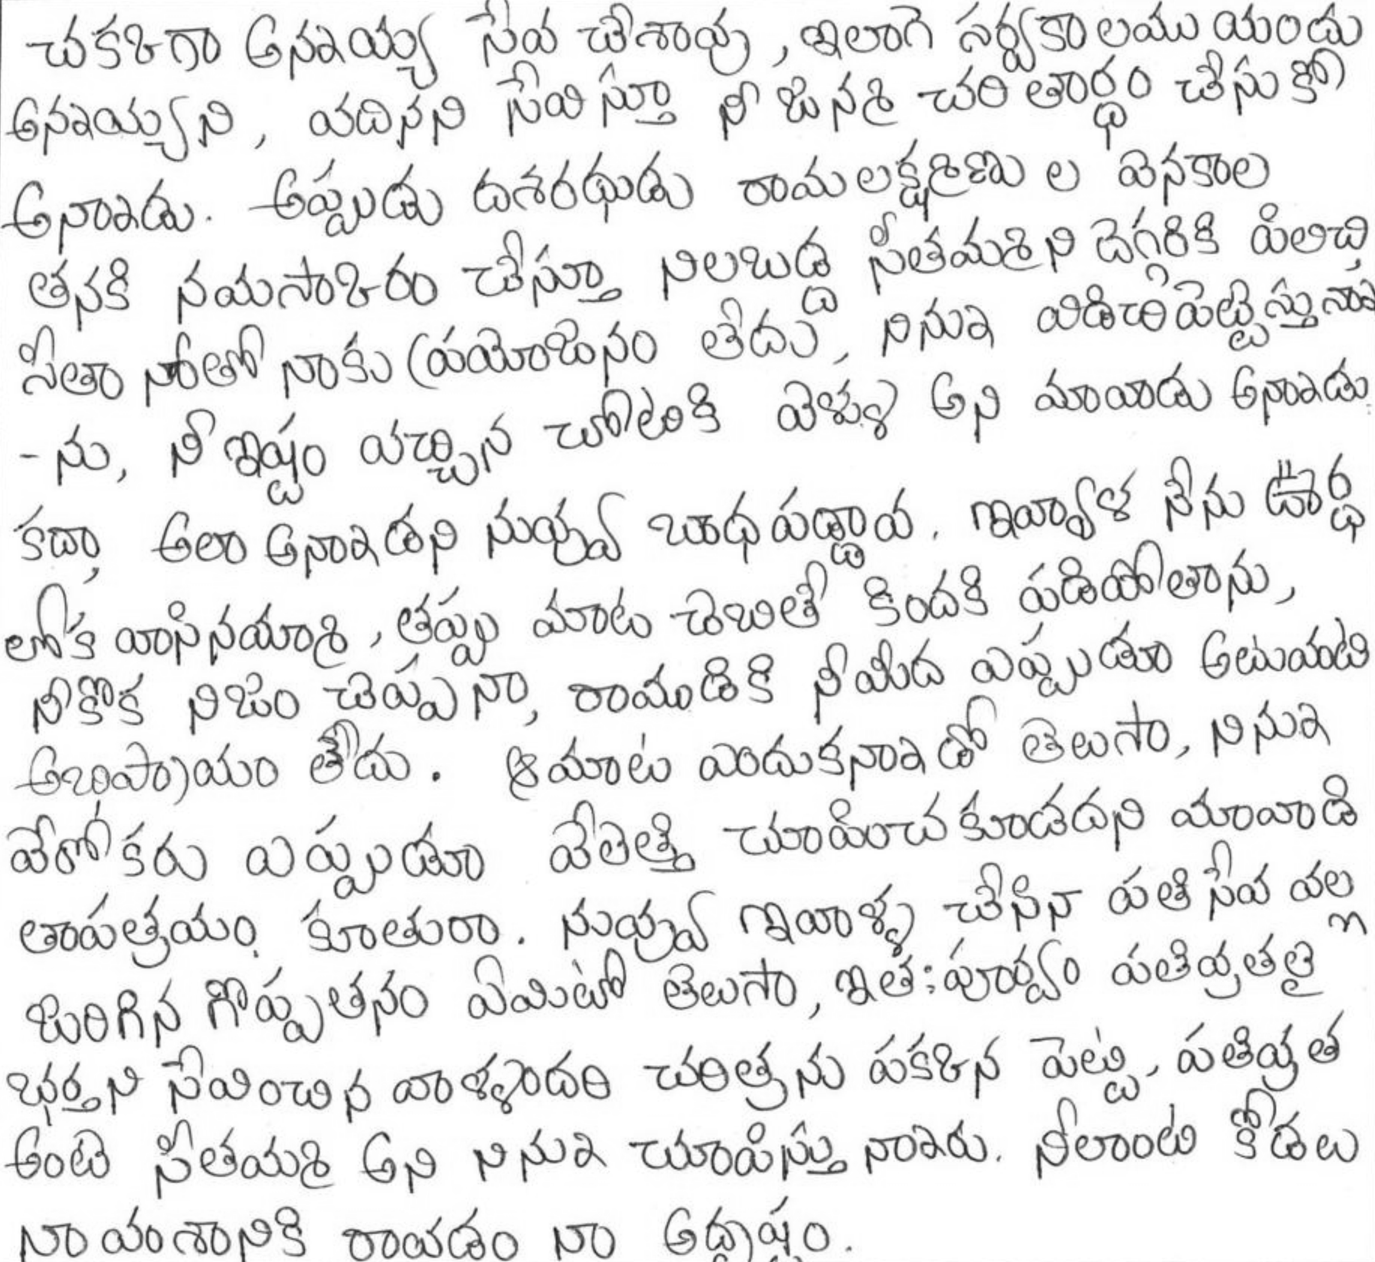 చక్కగా అన్నయ్య సేవ చేశావు, ఇలాగె సర్వకాలము యందు
అన్నయ్యని, వదినని సేవిస్తూ నీ జన్మ చరితార్థం చేసుకో
అన్నాడు. అప్పుడు దశరథుడు రామలక్ష్మణుల వెనకాల
తనకి నమస్కారం చేస్తూ నిలబడ్డ సీతమ్మని దెగ్గరికి పిలిచి,
సీతా నీతో నాకు ప్రయోజనం లేదు, నిన్ను విడిచిపెట్టేస్తున్నా
-ను, నీ ఇష్టం వచ్చిన చోటికి వెళ్ళు అని మావాడు అన్నాడు
కదా, అలా అన్నాడని నువ్వు బాధపడ్డావ. ఇవ్వాళ నేను ఊర్ధ్వ
లోక వాసినయ్యా, తప్పు మాట చెబితే కిందకి పడిపోతాను,
నీకొక నిజం చెప్పనా, రాముడికి నీమీద ఎప్పుడూ అటువంటి
అభిప్రాయం లేదు. ఆమాట ఎందుకన్నాడో తెలుసా, నిన్ను
వేరోకరు ఎప్పుడూ వేలెత్తి చూపించకూడదని మావాడి
తాపత్రయం కూతురా. నువ్వు ఇవాళ్ళ చేసిన పతి సేవ వల్ల
జరిగిన గొప్పతనం ఏమిటో తెలుసా, ఇత:పూర్వం పతివ్రతలై
భర్తని సేవించిన వాళ్ళందరి చరిత్రను పక్కన పెట్టి, పతివ్రత
అంటె సీతమ్మ అని నిన్ను చూపిస్తున్నారు. నీలాంటి కోడలు
నా వంశానికి రావడం నా అదృష్టం.